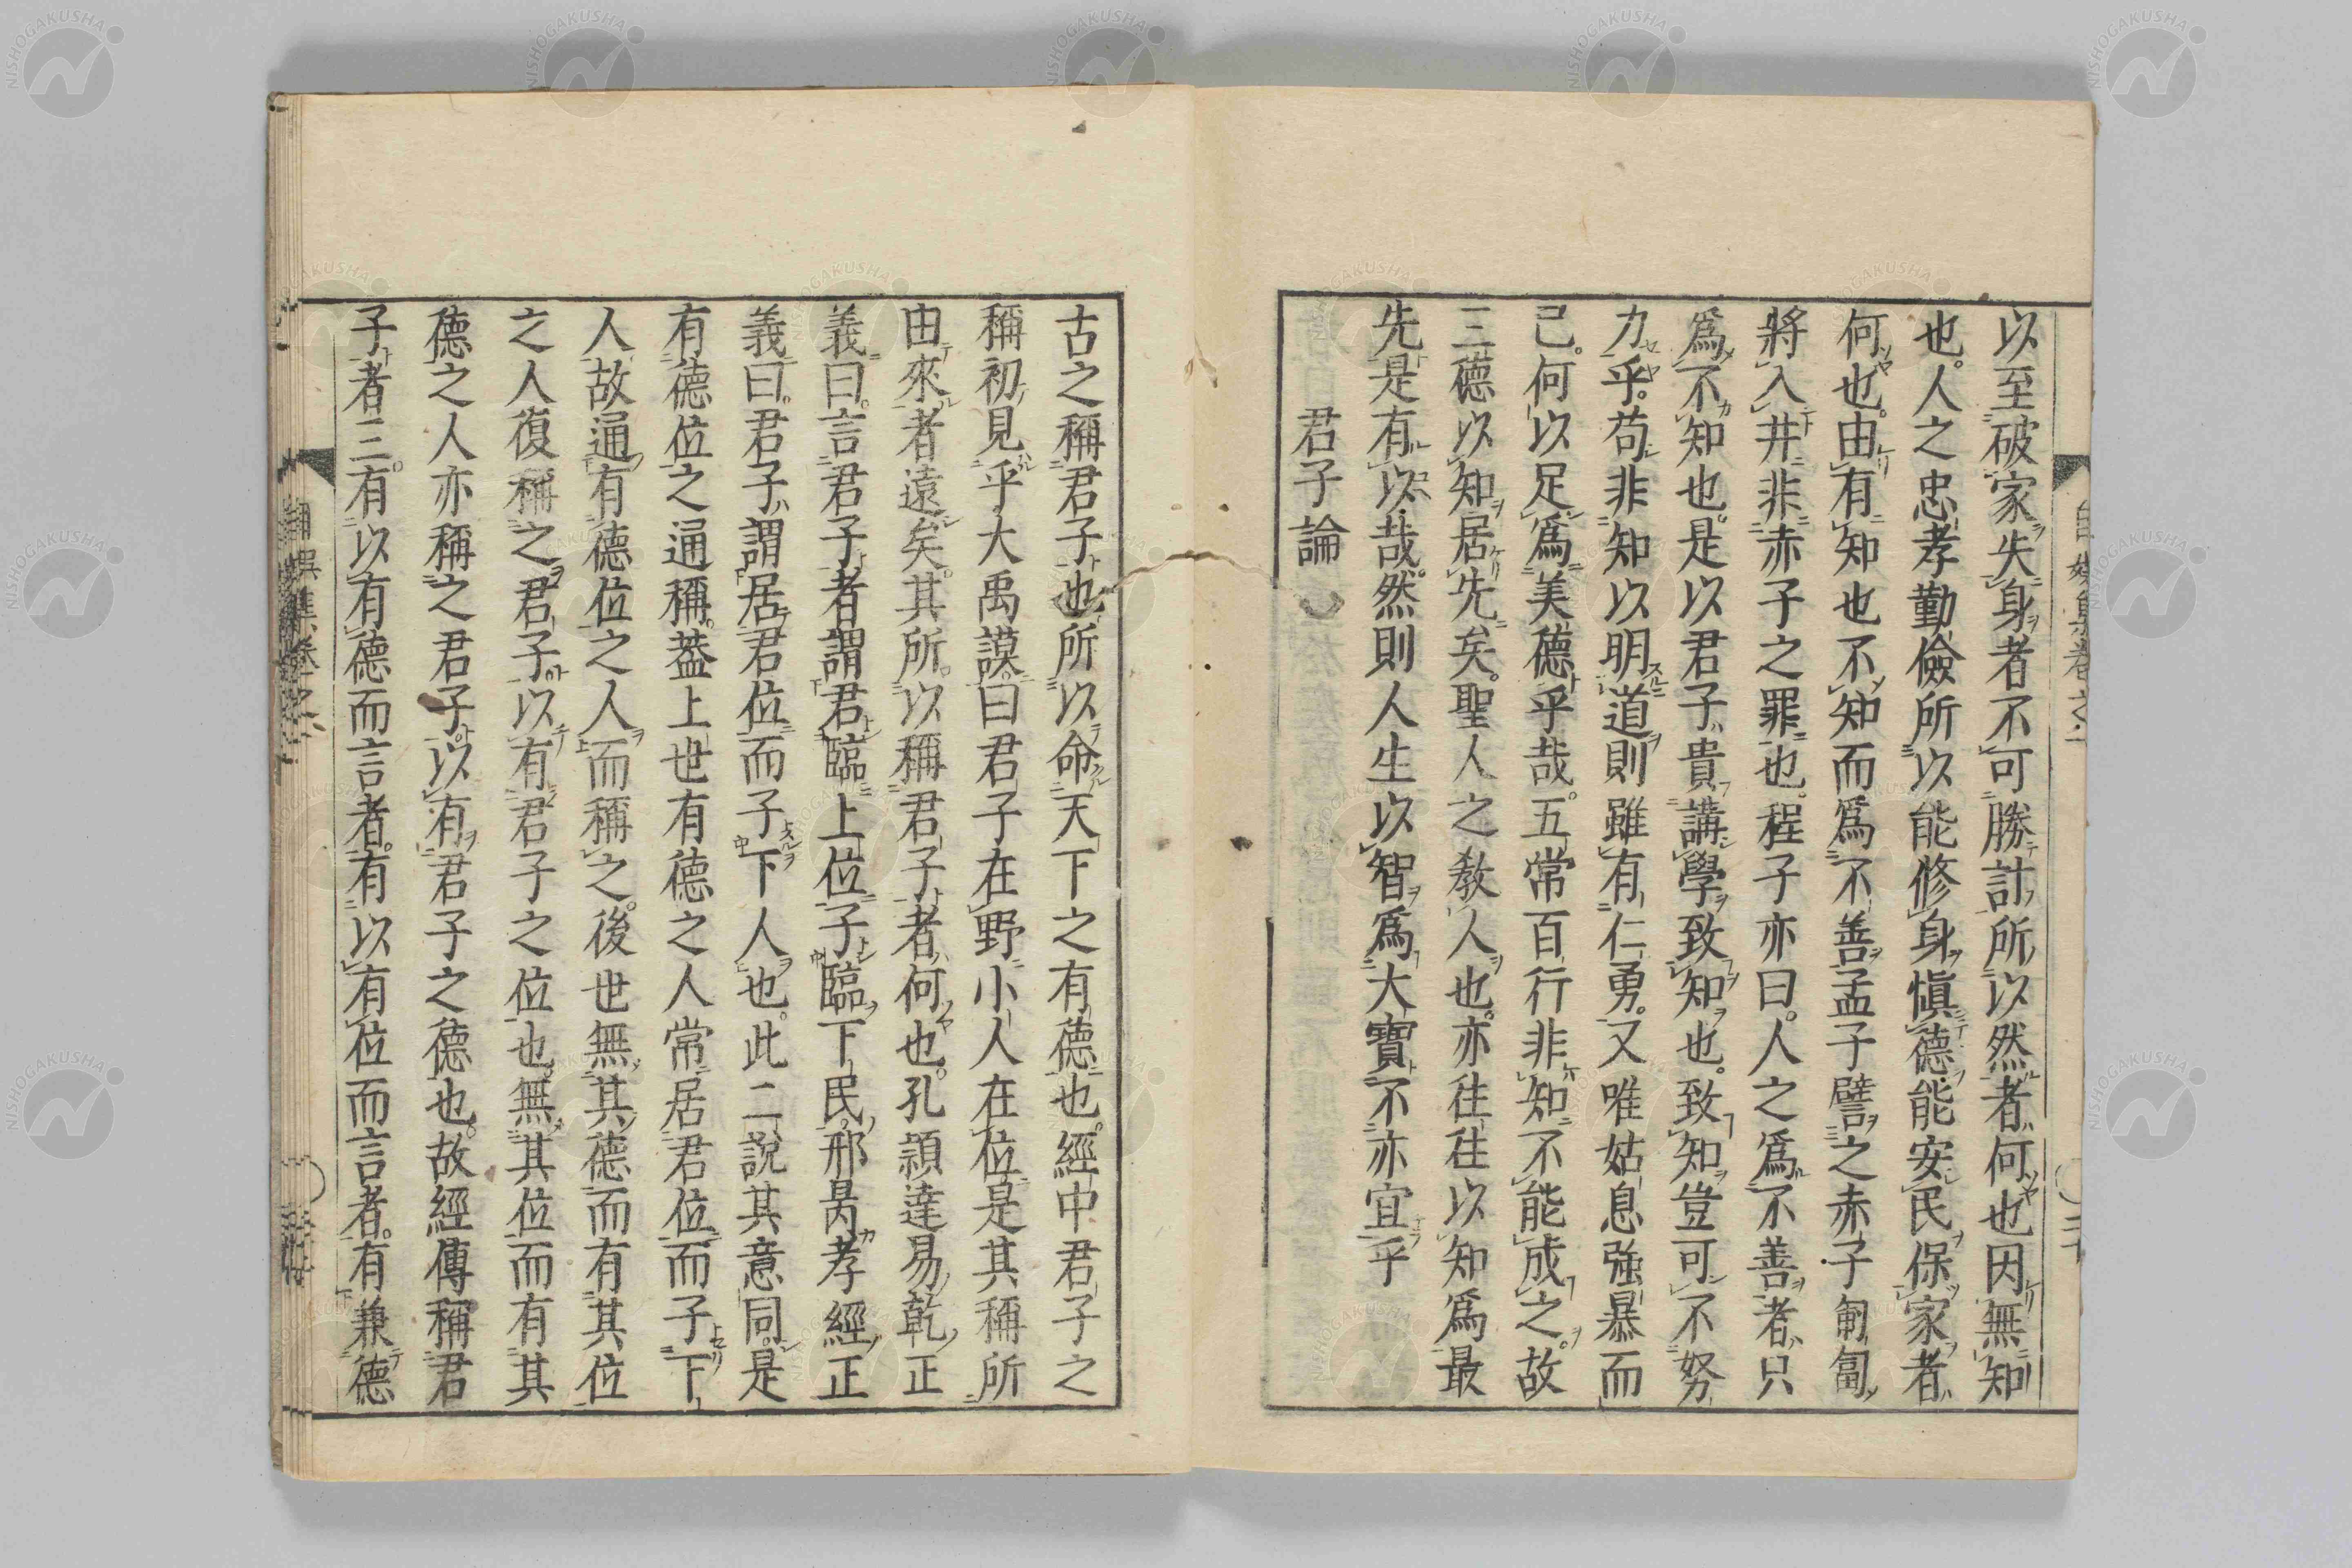 以至破家失身者不可勝計所以然者何也因無知
也。人之忠孝勤儉所以能修身愼德能安民保家者
何也。由有知也不知而爲不善孟子譬之赤子匍匐
將入井非赤子之罪也。程子亦曰。人之爲不善者只
爲不知也。是以君子貴講學致知也。致知豈可不努
力乎。苟非知以明道則雖有仁勇。又唯姑息強暴而
已。何以足爲美德乎哉。五常百行非知不能成之。故
三德以知居先矣。聖人之教人也。亦往往以知爲最
先是有以哉。然則人生以智爲大寶不亦宜乎
君子論
古之稱君子也所以命天下之有德也。經中君子之
稱初見乎大禹謨曰君子在野小人在位是其稱所
由來者遠矣。其所以稱君子者何也。孔穎達易乾正
義曰。言君子者謂君臨上位子臨下民。邢昺孝經正
義曰。君子謂居君位而子下人也。此二說其意同。是
有德位之通稱。蓋上世有德之人常居君位而子下
人故通有德位之人而稱之。後世無其德而有其位
之人復稱之君子以有君子之位也。無其位而有其
德之人亦稱之君子以有君子之德也。故經傳稱君
子者三。有以有德而言者。有以有位而言者。有兼德